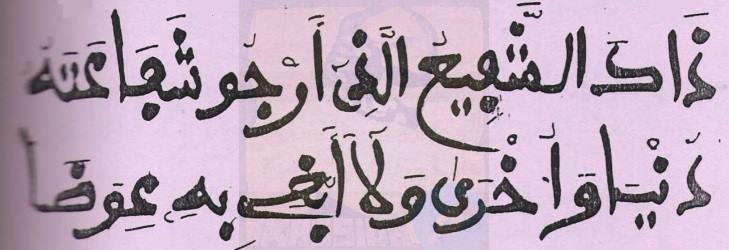 ذَاكَ الشَّفِيعُ الَّذِي أَرْجُو شَفَاعَتَهُ
دُنْيَا وَأُخْرَى وَلَا أَبْغِي بِهِ عِوَضَا